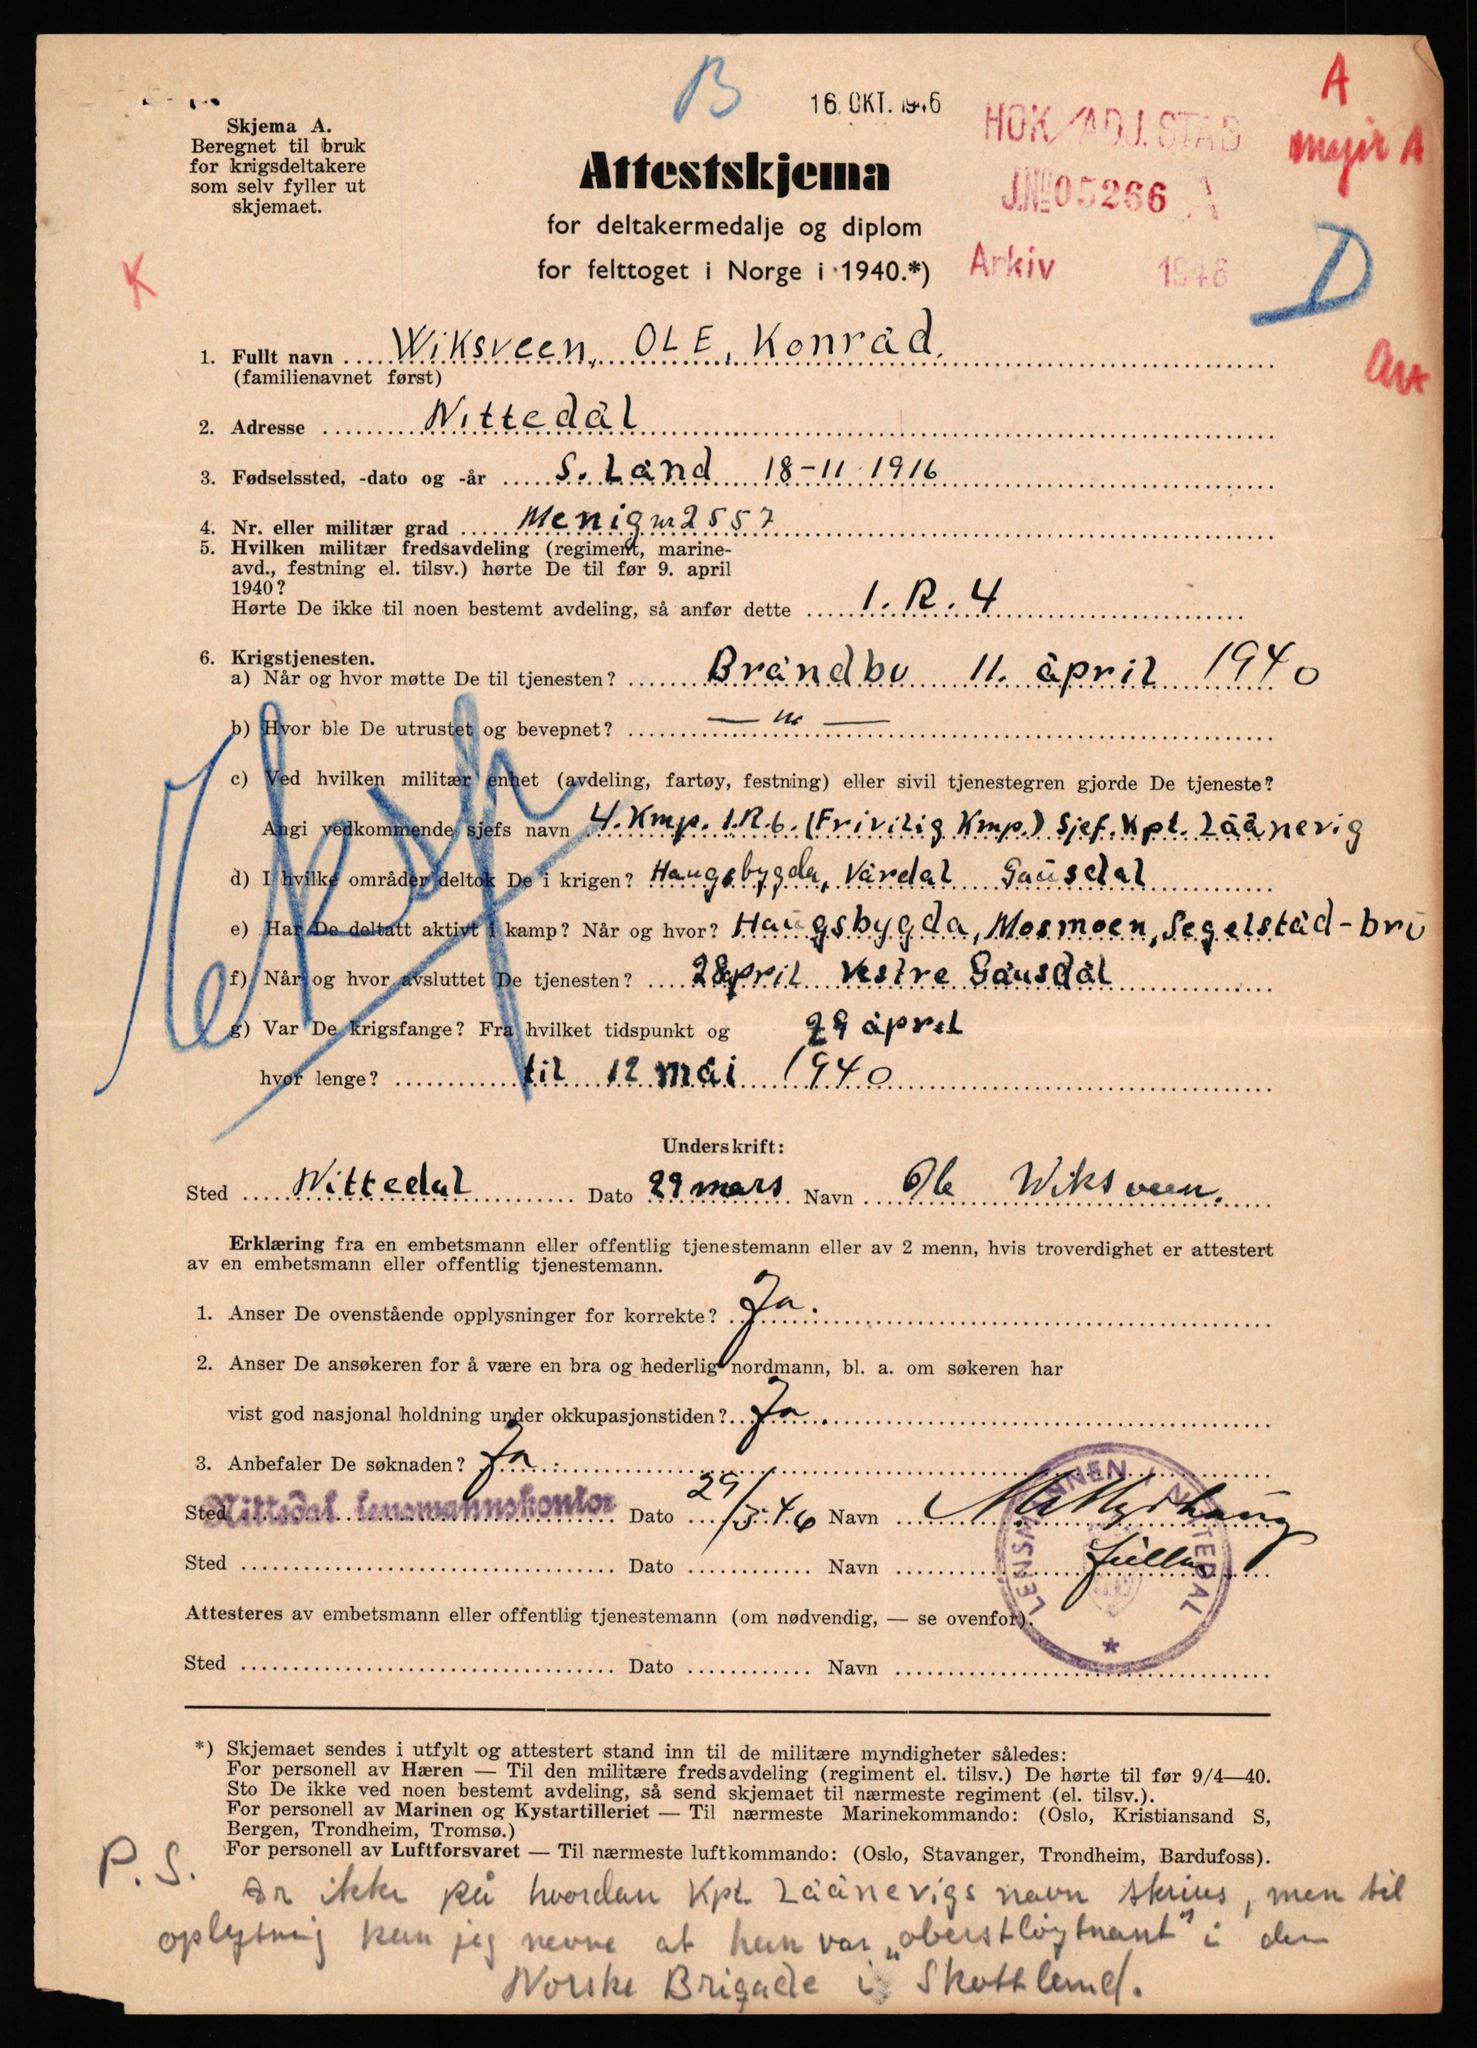 B
16. OKT. 1946
A
major A
HOK/ADJ.STAB
J.No 05266 A
Arkiv 1946
D
K
Skjema A.
Beregnet til bruk
for krigsdeltakere
som selv fyller ut
skjemaet.
Attestskjema
for deltakermedalje og diplom
for felttoget i Norge i 1940.*)
1. Fullt navn Wiksveen, OLE, Konrad.
(familienavnet først)
2. Adresse Nittedal
3. Fødselssted, -dato og -år S. Land 18-11 1916
4. Nr. eller militær grad Menig nr 2557
5. Hvilken militær fredsavdeling (regiment, marine-
avd., festning el. tilsv.) hørte De til før 9. april
1940?
Hørte De ikke til noen bestemt avdeling, så anfør dette I. R. 4
6. Krigstjenesten.
a) Når og hvor møtte De til tjenesten? Brandbu 11. april 1940
b) Hvor ble De utrustet og bevepnet? — " —
c) Ved hvilken militær enhet (avdeling, fartøy, festning) eller sivil tjenestegren gjorde De tjeneste?
Angi vedkommende sjefs navn 4. Kmp. I.R.6. (Frivilig Kmp.) Sjef. Kpt. Låånevig
d) I hvilke områder deltok De i krigen? Haugsbygda, Vardal Gausdal
e) Har De deltatt aktivt i kamp? Når og hvor? Haugsbygda, Mosmoen, Segelstad-bru
f) Når og hvor avsluttet De tjenesten? 28 april Vestre Gausdal
g) Var De krigsfange? Fra hvilket tidspunkt og 29 april
hvor lenge? til 12 mai 1940
Underskrift:
Sted Nittedal Dato 29 mars Navn Ole Wiksveen.
Erklæring fra en embetsmann eller offentlig tjenestemann eller av 2 menn, hvis troverdighet er attestert
av en embetsmann eller offentlig tjenestemann.
1. Anser De ovenstående opplysninger for korrekte? Ja.
2. Anser De ansøkeren for å være en bra og hederlig nordmann, bl. a. om søkeren har
vist god nasjonal holdning under okkupasjonstiden? Ja.
3. Anbefaler De søknaden? Ja.
Sted Nittedal lensmannskontor Dato 29/3-46 Navn
Sted Dato Navn
LENSMANNEN NITTEDAL
Attesteres av embetsmann eller offentlig tjenestemann (om nødvendig, — se ovenfor).
Sted Dato Navn
*) Skjemaet sendes i utfylt og attestert stand inn til de militære myndigheter således:
For personell av Hæren — Til den militære fredsavdeling (regiment el. tilsv.) De hørte til før 9/4—40.
Sto De ikke ved noen bestemt avdeling, så send skjemaet til nærmeste regiment (el. tilsv.).
For personell av Marinen og Kystartilleriet — Til nærmeste Marinekommando: (Oslo, Kristiansand S,
Bergen, Trondheim, Tromsø.)
For personell av Luftforsvaret — Til nærmeste luftkommando: (Oslo, Stavanger, Trondheim, Bardufoss).
P. S. Er ikke på hvordan Kpt. Låånevigs navn skrives, men til
oplysning kan jeg nevne at han var „oberstløytnant" i den
Norske Brigade i Skottland.